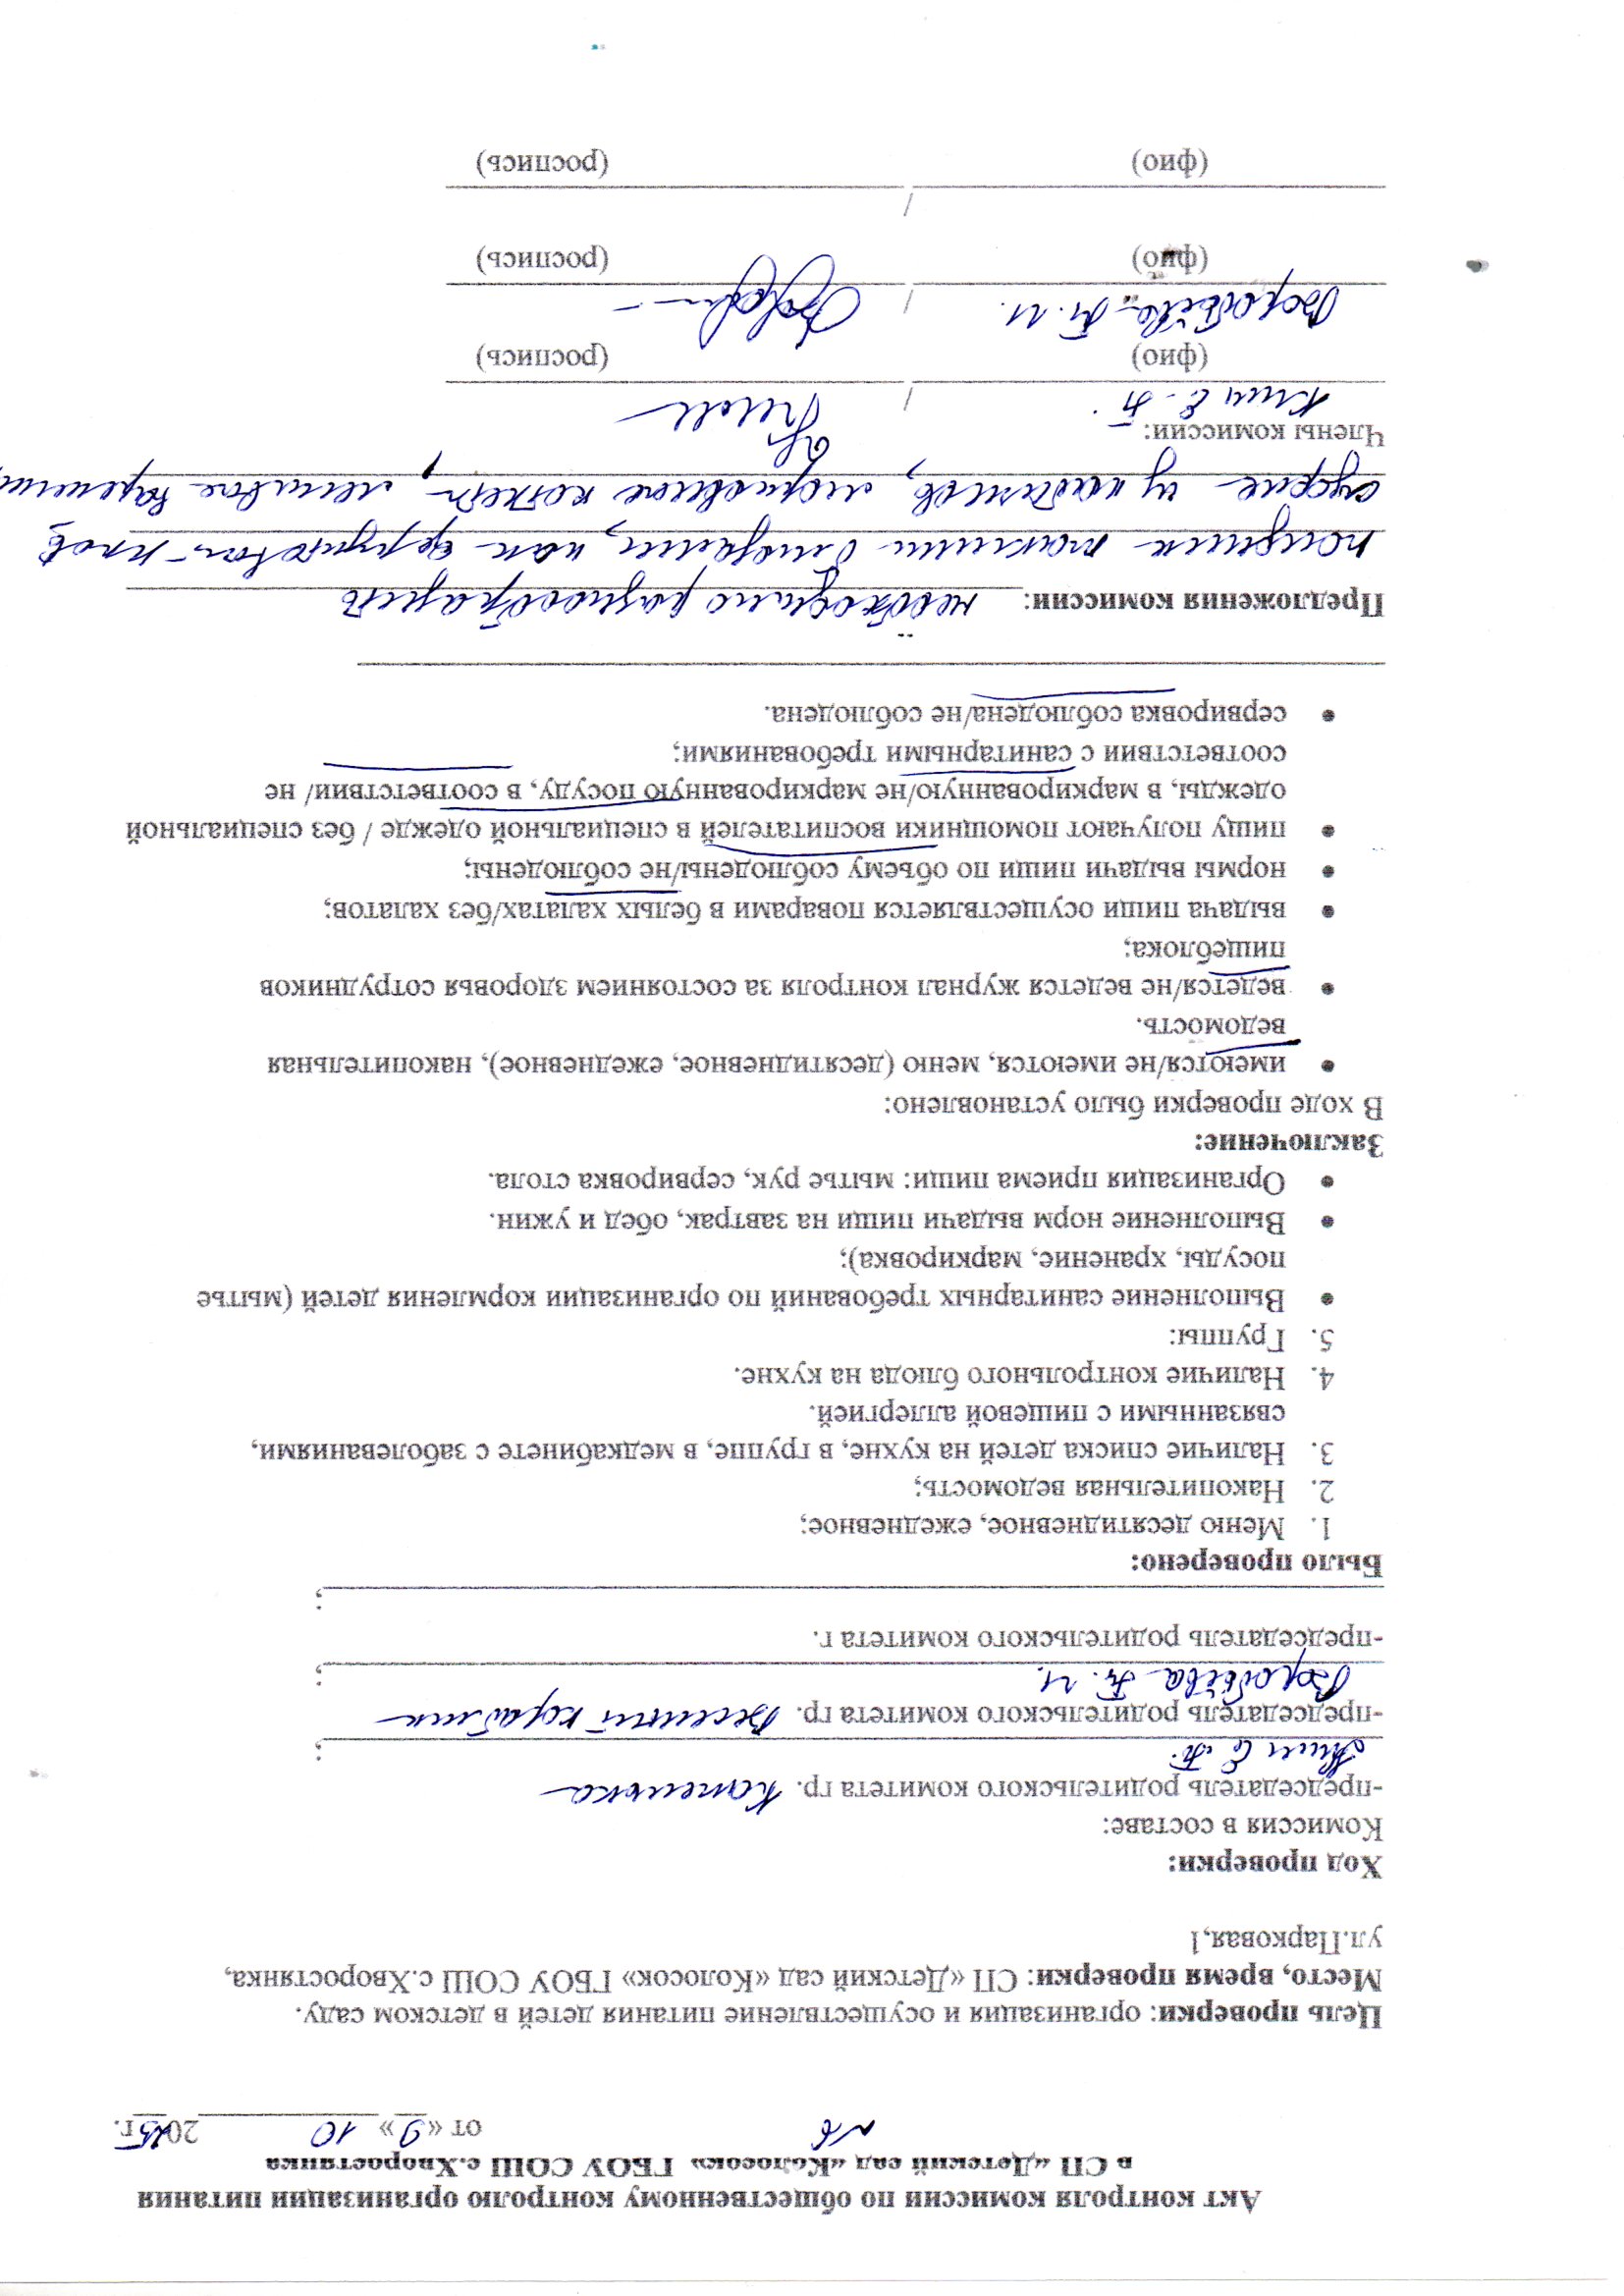 Акт контроля комиссии по общественному контролю организации питания
в СП «Детский сад «Колосок» ГБОУ СОШ с.Хворостянка
№6 от «9» 10 2025г.
Цель проверки: организация и осуществление питания детей в детском саду.
Место, время проверки: СП «Детский сад «Колосок» ГБОУ СОШ с.Хворостянка,
ул.Парковая,1
Ход проверки:
Комиссия в составе:
-председатель родительского комитета гр. Капелька
Ким Е.А. ;
-председатель родительского комитета гр. Веселый кораблик
Воробьёва А.И. ;
-председатель родительского комитета г.
;
Было проверено:
1. Меню десятидневное, ежедневное;
2. Накопительная ведомость;
3. Наличие списка детей на кухне, в группе, в медкабинете с заболеваниями,
связанными с пищевой аллергией.
4. Наличие контрольного блюда на кухне.
5. Группы:
• Выполнение санитарных требований по организации кормления детей (мытье
посуды, хранение, маркировка);
• Выполнение норм выдачи пищи на завтрак, обед и ужин.
• Организация приема пищи: мытье рук, сервировка стола.
Заключение:
В ходе проверки было установлено:
• имеются/не имеются, меню (десятидневное, ежедневное), накопительная
ведомость.
• ведется/не ведется журнал контроля за состоянием здоровья сотрудников
пищеблока;
• выдача пищи осуществляется поварами в белых халатах/без халатов;
• нормы выдачи пищи по объему соблюдены/не соблюдены;
• пищу получают помощники воспитателей в специальной одежде / без специальной
одежды, в маркированную/не маркированную посуду, в соответствии/ не
соответствии с санитарными требованиями;
• сервировка соблюдена/не соблюдена.
Предложения комиссии: необходимо разнообразить
рацион такими блюдами, как фруктовый плов
суфле из кабачков, морковные котлеты, ленивые вареники
Члены комиссии:
Ким Е.А. /
(фио) (роспись)
Воробьёва А.И /
(фио) (роспись)
/
(фио) (роспись)